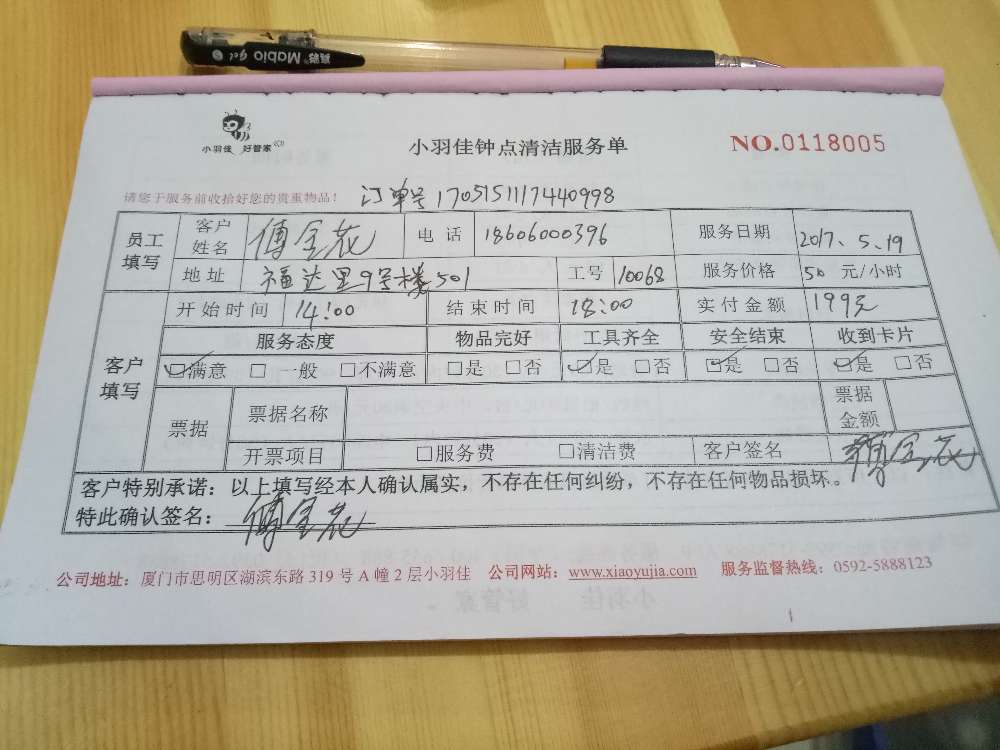 Mabio gel
小羽佳 好管家
小羽佳钟点清洁服务单
NO.0118005
请您于服务前收拾好您的贵重物品!
订单号17051511174409​98
员工填写 客户姓名 傅金花 电话 18606000396 服务日期 2017、5、19
地址 福达里9号楼501 工号 10068 服务价格 50 元/小时
客户填写 开始时间 14:00 结束时间 18:00 实付金额 199元
服务态度 物品完好 工具齐全 安全结束 收到卡片
☑满意 □一般 □不满意 □是 □否 ☑是 □否 ☑是 □否 ☑是 □否
票据 票据名称 票据金额
开票项目 □服务费 □清洁费 客户签名 傅金花
客户特别承诺:以上填写经本人确认属实,不存在任何纠纷,不存在任何物品损坏。
特此确认签名:傅金花
公司地址:厦门市思明区湖滨东路 319 号 A 幢 2 层小羽佳 公司网站:www.xiaoyujia.com 服务监督热线:0592-5888123